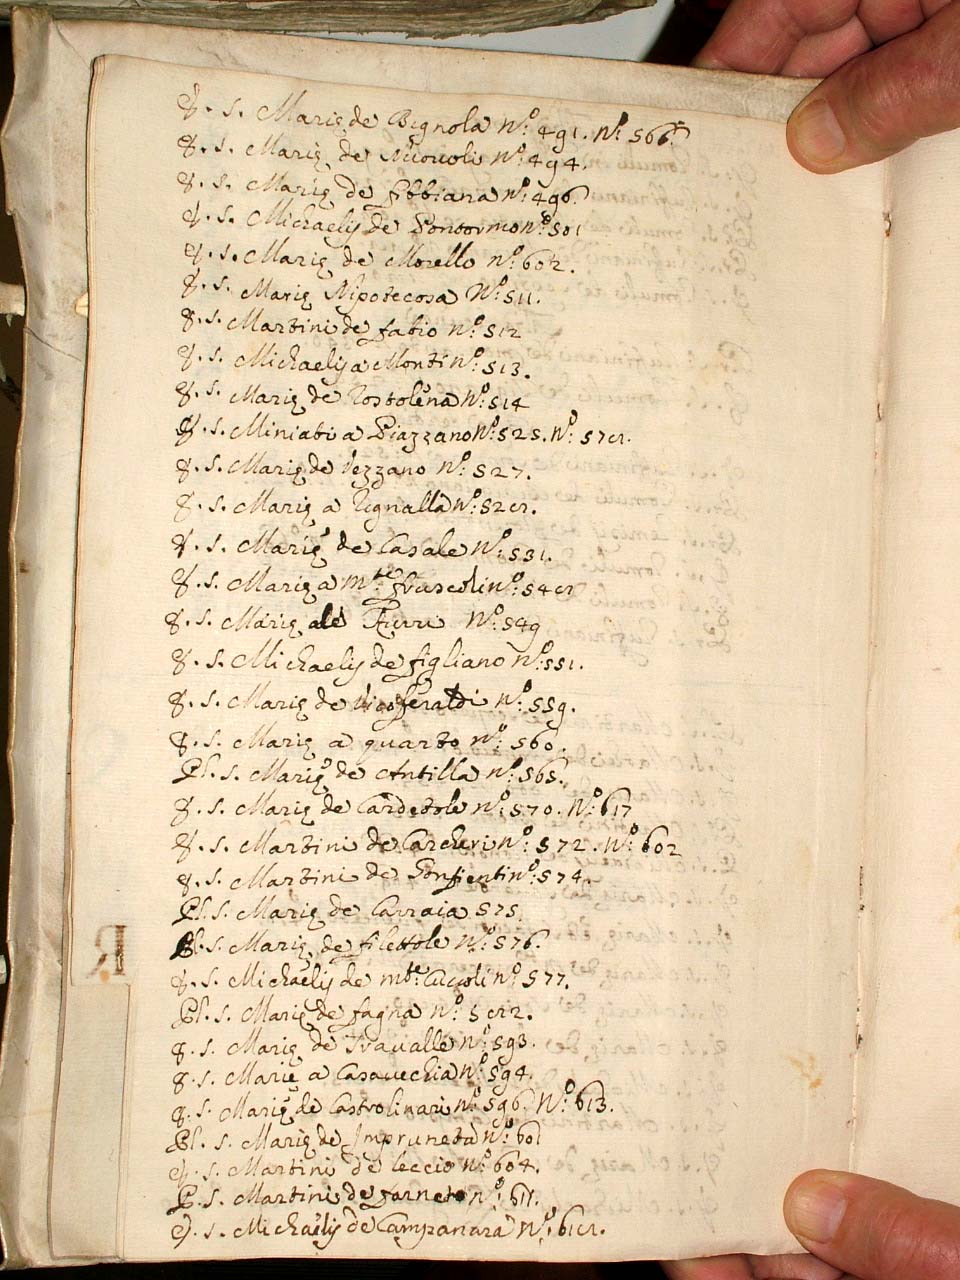 E. S. Marię de Bignola N.º 491. N.º 566.
E. S. Marię de Nuovoli N.º 494.
E. S. Marię de fibbiana N.º 496
E. S. Michaelis de Pontormo N.º 501
E. S. Marię de Morello N.º 602.
E. S. Marię Nipotecosa N.º 511.
E. S. Martini de fabio N.º 512
E. S. Michaelis a Monti N.º 513.
E. S. Marię de Rostolena N.º 514
E. S. Miniati a Piazzano N.º 525. N.º 578.
E. S. Marię de Vezzano N.º 527.
E. S. Marię a Rignalla N.º 528.
E. S. Marię de Casale N.º 531.
E. S. Marię a m.te fruscoli N.º 548
E. S. Marię N.º 549
E. S. Michaelis de figliano N.º 551.
E. S. Marię de Vicoferaldi N.º 559.
E. S. Marię a quarto N.º 560.
Pl. S. Marię de Antilla N.º 565.
E. S. Marię de Cardetole N.º 570. N.º 617
E. S. Martini de Carcheri N.º 572. N.º 602
E. S. Martini de Gonfienti N.º 574.
Pl. S. Marię de Carraia 575.
Pl. S. Marię de filettole N.º 576.
E. S. Michaelis de m.te Cuccoli N.º 577.
Pl. S. Marię de fagna N.º 582.
E. S. Marię de Travalle N.º 593.
E. S. Marię a Casavechia N.º 594.
E. S. Marię de Castrolinari N.º 596. N.º 613.
Pl. S. Marię de Impruneta N.º 601
E. S. Martini de leccio N.º 604.
P. S. Martini de farneto N.º 611.
E. S. Michaelis de Campanara N.º 618.
R